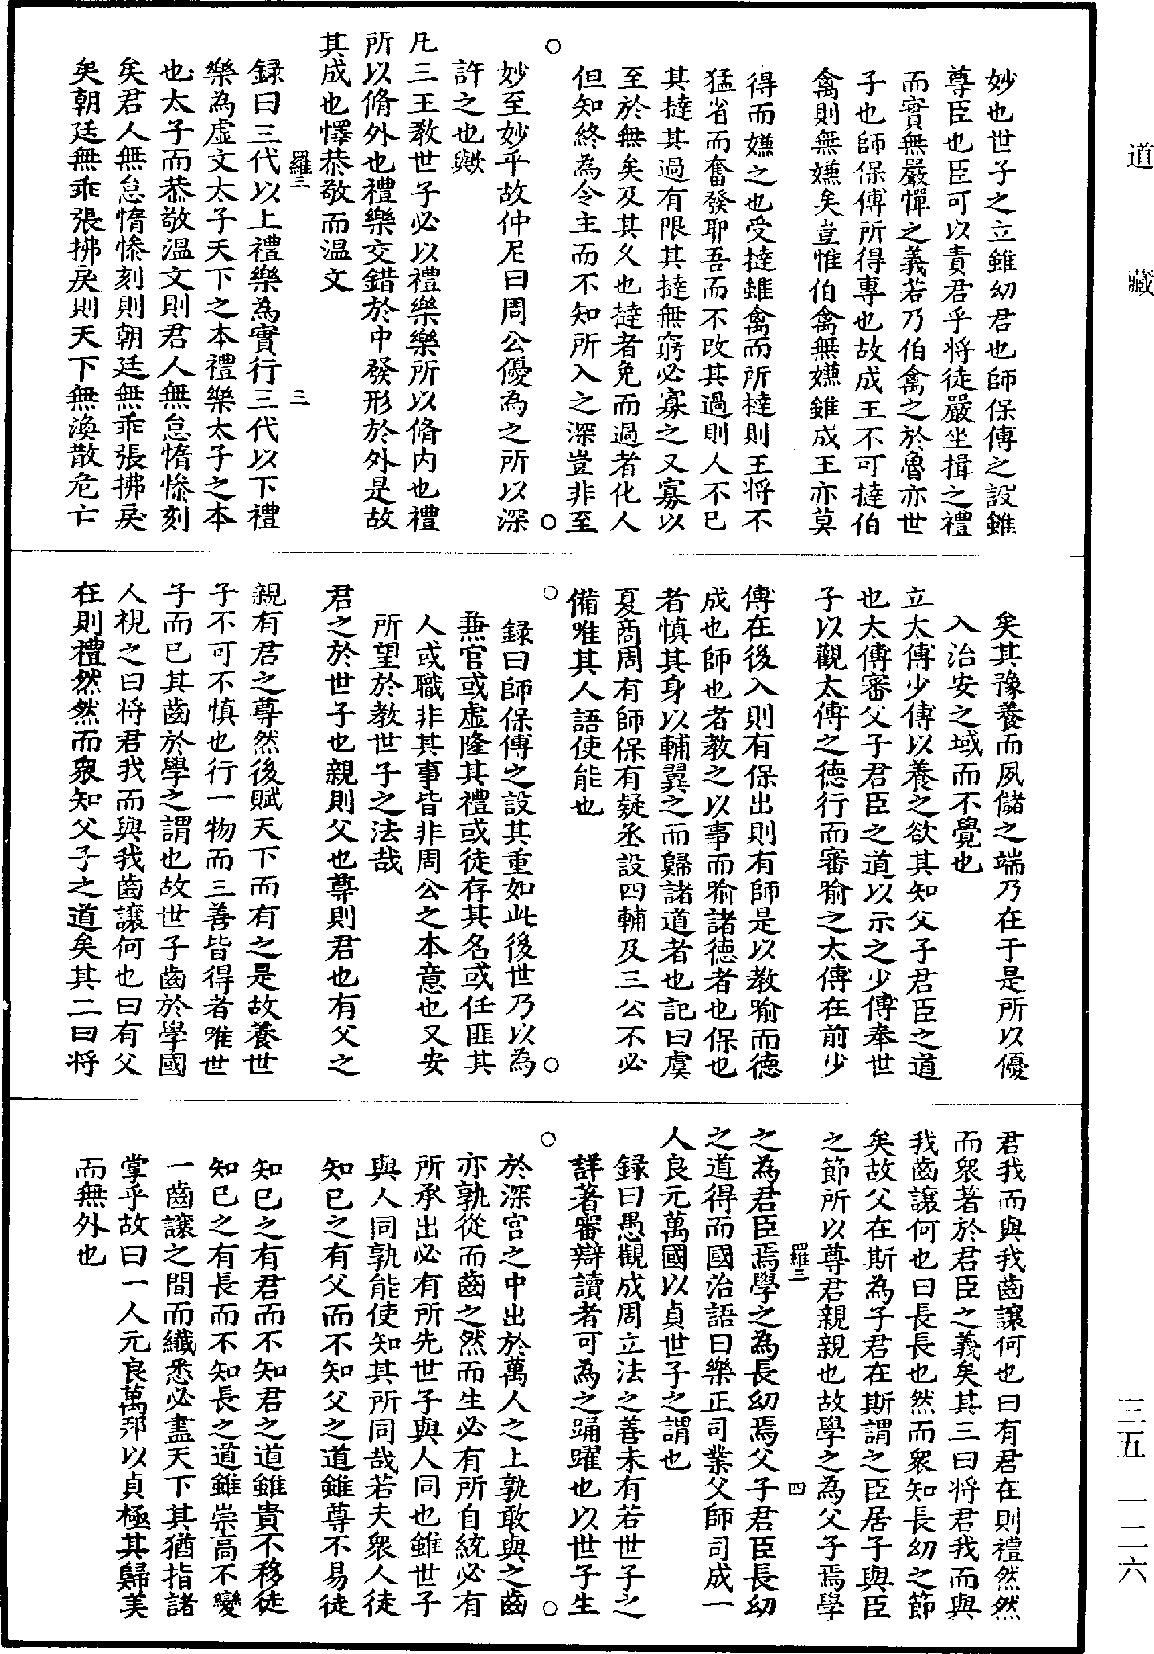 道藏
妙也世子之立雖幼君也師保傅之設雖
尊臣也臣可以責君乎將徒嚴坐揖之禮
而實無嚴憚之義若乃伯禽之於魯亦世
子也師保傅所得專也故成王不可撻伯
禽則無嫌矣豈惟伯禽無嫌雖成王亦莫
得而嫌之也受撻雖禽而所撻則王將不
猛省而奮發耶吾而不改其過則人不已
其撻其過有限其撻無窮必寡之又寡以
至於無矣及其久也撻者免而過者化人
但知終為令主而不知所入之深豈非至
妙至妙乎故仲尼曰周公優為之所以深
許之也歟
凡三王教世子必以禮樂樂所以脩內也禮
所以脩外也禮樂交錯於中發形於外是故
其成也懌恭敬而溫文
羅三
三
錄曰三代以上禮樂為實行三代以下禮
樂為虛文太子天下之本禮樂太子之本
也太子而恭敬溫文則君人無怠惰慘刻
矣君人無怠惰慘刻則朝廷無乖張拂戾
矣朝廷無乖張拂戾則天下無渙散危亡
矣其豫養而夙儲之端乃在于是所以優
入治安之域而不覺也
立太傅少傅以養之欲其知父子君臣之道
也太傅審父子君臣之道以示之少傅奉世
子以觀太傅之德行而審喻之太傅在前少
傅在後入則有保出則有師是以教喻而德
成也師也者教之以事而喻諸德者也保也
者慎其身以輔翼之而歸諸道者也記曰虞
夏商周有師保有疑丞設四輔及三公不必
備唯其人語使能也
錄曰師保傅之設其重如此後世乃以為
兼官或虛隆其禮或徒存其名或任匪其
人或職非其事皆非周公之本意也又安
所望於教世子之法哉
君之於世子也親則父也尊則君也有父之
親有君之尊然後賦天下而有之是故養世
子不可不慎也行一物而三善皆得者唯世
子而已其齒於學之謂也故世子齒於學國
人視之曰將君我而與我齒讓何也曰有父
在則禮然然而衆知父子之道矣其二曰將
君我而與我齒讓何也曰有君在則禮然然
而衆著於君臣之義矣其三曰將君我而與
我齒讓何也曰長長也然而衆知長幼之節
矣故父在斯為子君在斯謂之臣居子與臣
之節所以尊君親親也故學之為父子焉學
羅三
四
之為君臣焉學之為長幼焉父子君臣長幼
之道得而國治語曰樂正司業父師司成一
人良元萬國以貞世子之謂也
錄曰愚觀成周立法之善未有若世子之
詳著審辯讀者可為之踊躍也以世子生
於深宮之中出於萬人之上孰敢與之齒
亦孰從而齒之然而生必有所自統必有
所承出必有所先世子與人同也雖世子
與人同孰能使知其所同哉若夫衆人徒
知已之有父而不知父之道雖尊不易徒
知已之有君而不知君之道雖貴不移徒
知已之有長而不知長之道雖崇高不變
一齒讓之間而纖悉必盡天下其猶指諸
掌乎故曰一人元良萬邦以貞極其歸美
而無外也
三五
一二六